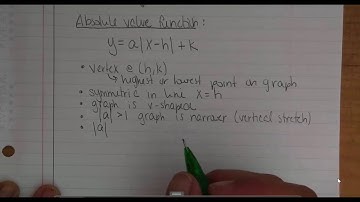 Absolute value function:
y = a|x-h| + k
• vertex @ (h,k)
↳ highest or lowest point on graph
• symmetric in line x=h
• graph is v-shaped
• |a| > 1 graph is narrower (vertical stretch)
• |a|